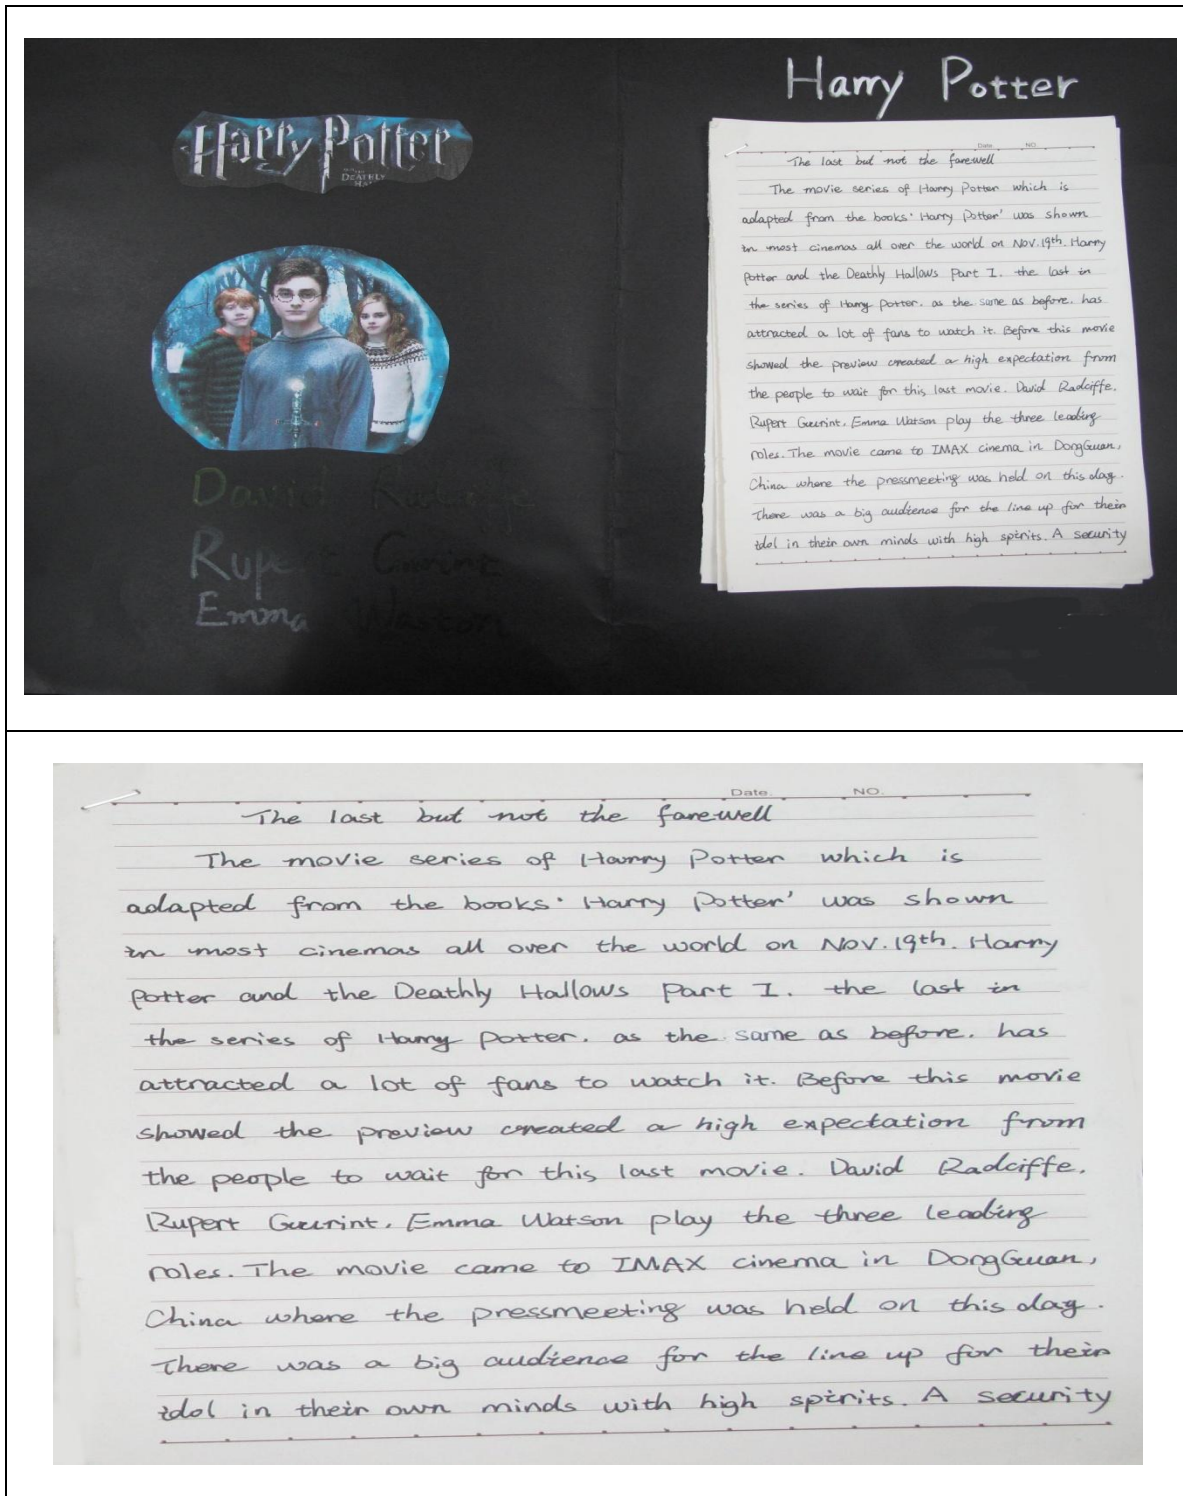 Harry Potter
Harry Potter
AND THE
DEATHLY
Date. NO.
The last but not the farewell
The movie series of Harry Potter which is
adapted from the books·Harry Potter' was shown
in most cinemas all over the world on Nov.19th. Harry
Potter and the Deathly Hallows Part I. the last in
the series of Harry Potter. as the same as before. has
attracted a lot of fans to watch it. Before this movie
showed the preview created a high expectation from
the people to wait for this last movie. David Radciffe.
Rupert Guurint. Emma Watson play the three leading
roles. The movie came to IMAX cinema in DongGuan,
China where the pressmeeting was held on this day.
There was a big audience for the line up for their
idol in their own minds with high spirits. A security
David
Rupert Grrint
Emma Waston
Date. NO.
The last but not the farewell
The movie series of Harry Potter which is
adapted from the books·Harry Potter' was shown
in most cinemas all over the world on Nov.19th. Harry
Potter and the Deathly Hallows Part I. the last in
the series of Harry Potter. as the same as before. has
attracted a lot of fans to watch it. Before this movie
showed the preview created a high expectation from
the people to wait for this last movie. David Radciffe.
Rupert Guurint. Emma Watson play the three leading
roles. The movie came to IMAX cinema in DongGuan,
China where the pressmeeting was held on this day.
There was a big audience for the line up for their
idol in their own minds with high spirits. A security